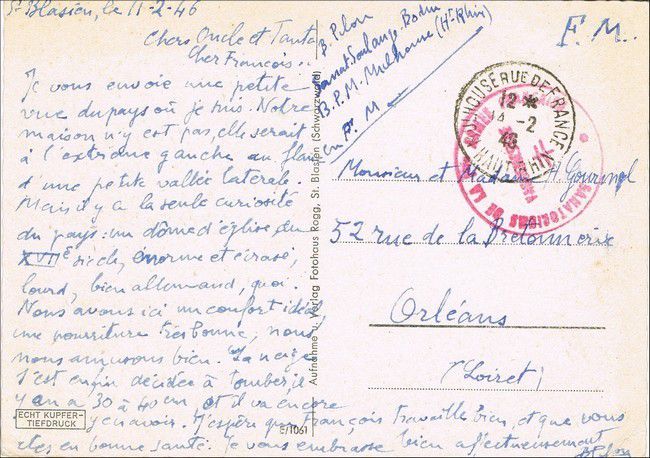 St Blasien, le 11-2-46
Chers Oncle et Tante
Cher François..
Je vous envoie une petite
vue du pays où je suis. Notre
maison n'y est pas, elle serait
à l'extrème gauche au flanc
d'une petite vallée latérale.
Mais il y a la seule curiosité
du pays: un dôme d'église du
XVIIe siècle, énorme et écrasé,
lourd, bien allemand, quoi.
Nous avons ici un confort idéal,
une nourriture très bonne, nous
nous amusons bien. La neige
s'est enfin décidée à tomber, il
y en a 30 à 40 cm, et il va encore
y en avoir. J'espère que François travaille bien, et que vous
êtes en bonne santé. Je vous embrasse bien affectueusement
ECHT KUPFER-
TIEFDRUCK
E/1061
Aufnahme u. Verlag Fotohaus Rogg, St. Blasien (Schwarzwald)
B. Pilon
B.P.M. Mulhouse (Ht-Rhin)
F.M.
RUE DE FRANCE
12 *
-2
46
HAUT-RHIN
SANATORIUMS DE LA
Monsieur et Madame H.
52 rue de la Bretonnerie
Orléans
(Loiret)